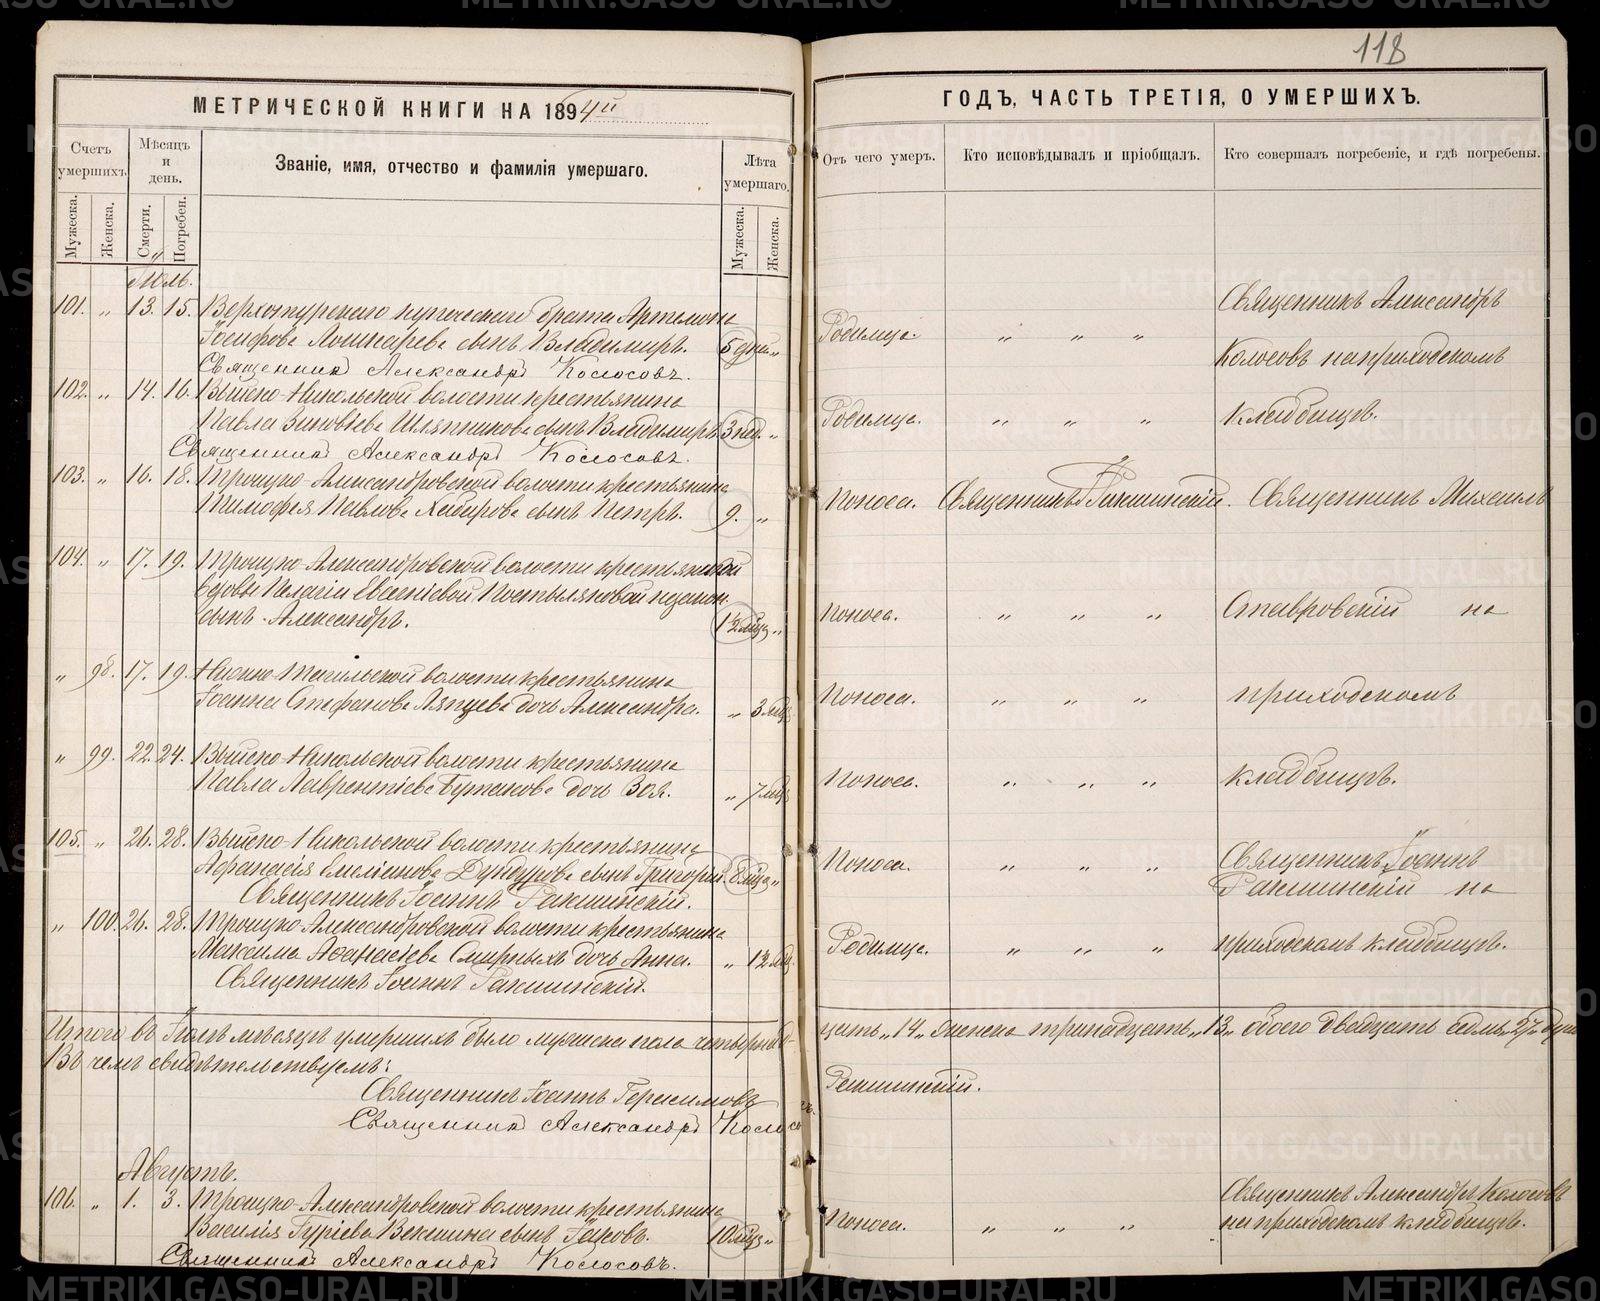 118
МЕТРИЧЕСКОЙ КНИГИ НА 1894й
ГОДЪ, ЧАСТЬ ТРЕТІЯ, О УМЕРШИХЪ.
Счетъ умершихъ
Мѣсяцъ и день.
Званіе, имя, отчество и фамилія умершаго.
Лѣта умершаго.
Отъ чего умеръ.
Кто исповѣдывалъ и пріобщалъ.
Кто совершалъ погребеніе, и гдѣ погребены.
Мужеска.
Женска.
Смерти.
Погребен.
Мужеска.
Женска.
Іюль.
101. „ 13. 15. Верхотурскаго купеческаго брата Артемона
Іосифова сынъ Владимиръ. 5 дней „
Священникъ Александръ Колосовъ.
102. „ 14. 16. Выйско-Никольской волости крестьянина
Павла Зиновіева Шляпникова сынъ Владимиръ 3 нед. „
Священникъ Александръ Колосовъ.
103. „ 16. 18. Троицко-Александровской волости крестьянина
Тимофея Павлова сынъ Петръ. 9. „
104. „ 17. 19. Троицко-Александровской волости крестьянской
вдовы Пелагіи Евгеніевой незакон.
сынъ Александръ. 1½ мѣс „
„ 98. 17. 19. Нижне-Тагильской волости крестьянина
Іоанна Стефанова Ляпцева дочь Александра. „ 3 мѣс
„ 99. 22. 24. Выйско-Никольской волости крестьянина
Павла Лаврентіева дочь Зоя. „ 7 мѣс
105. „ 26. 28. Выйско-Никольской волости крестьянина
Афанасія Емеліанова Дундурова сынъ Григорій. 8 мѣс „
Священникъ Іоаннъ Ракшинскій.
„ 100. 26. 28. Троицко-Александровской волости крестьянина
Максима Аѳанасіева Смирныхъ дочь Анна. „
Священникъ Іоаннъ Ракшинскій.
Итого въ Іюлѣ мѣсяцѣ умершихъ было мужеска пола четырнад-
Въ чемъ свидѣтельствуемъ:
Священникъ Іоаннъ Герасимовъ
Священникъ Александръ Колосовъ.
Августъ.
106. „ 1. 3. Троицко-Александровской волости крестьянина
Василія Гуріева Векшина сынъ Іаковъ. 10 мѣс „
Священникъ Александръ Колосовъ.
Священникъ Александръ
Родимца. „ „ „
Колосовъ на приходскомъ
Родимца. „ „ „ кладбищѣ.
Поноса. Священникъ І. Ракшинскій. Священникъ Михаилъ
Поноса. „ „ „ Ставровскій на
Поноса. „ „ „ приходскомъ
Поноса. „ „ „ кладбищѣ.
Поноса. „ „ „ Священникъ Іоаннъ
Ракшинскій на
Родимца. „ „ „ приходскомъ кладбищѣ.
цать „14„ женска тринадцать „13„ обоего двадцать семь „27„ душъ
Ракшинскій.
Священникъ Александръ Колосовъ
Поноса. „ „ „ на приходскомъ кладбищѣ.
METRIKI.GASO-URAL.RU